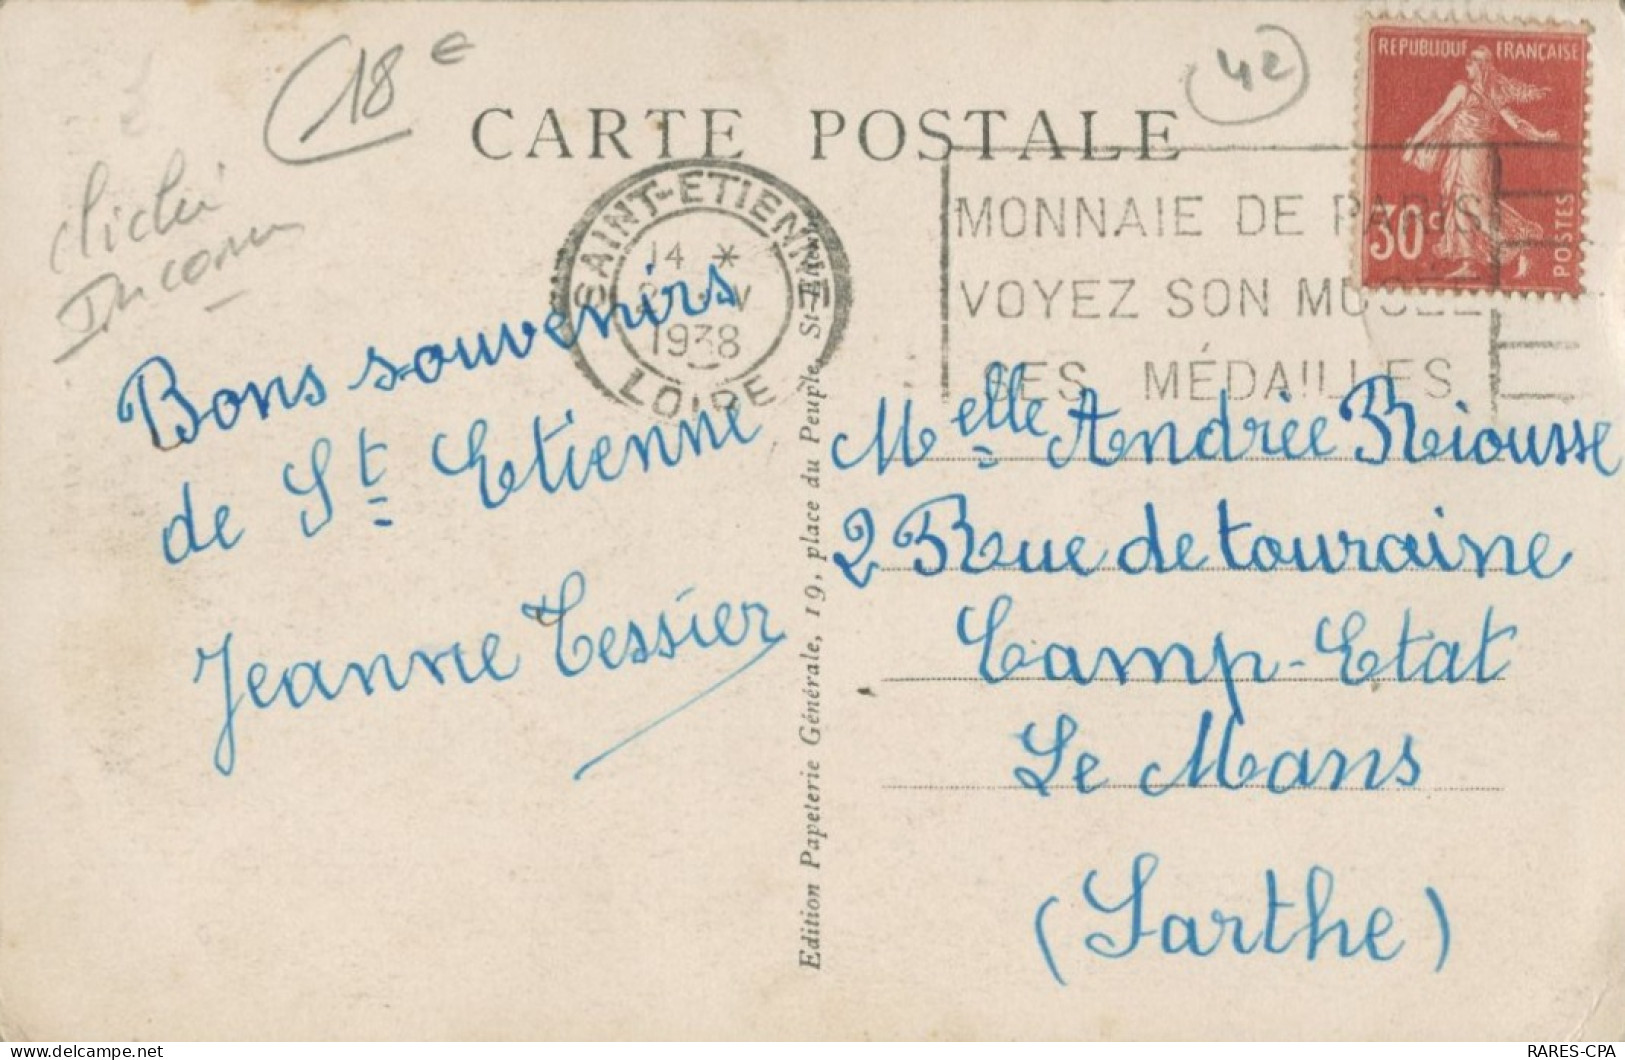 18 e
42
cliché
Inconnu
CARTE POSTALE
REPUBLIQUE FRANÇAISE
30 c
POSTES
SAINT-ETIENNE
14 *
1938
LOIRE
MONNAIE DE PARIS
VOYEZ SON MUSÉE
SES MÉDAILLES
Bons souvenirs
de St Etienne
Jeanne Tessier
Edition Papeterie Générale, 19, place du Peuple, St-Etienne
Melle Andrée Riousse
2 Rue de touraine
Camp-Etat
Le Mans
(Sarthe)
RARES-CPA